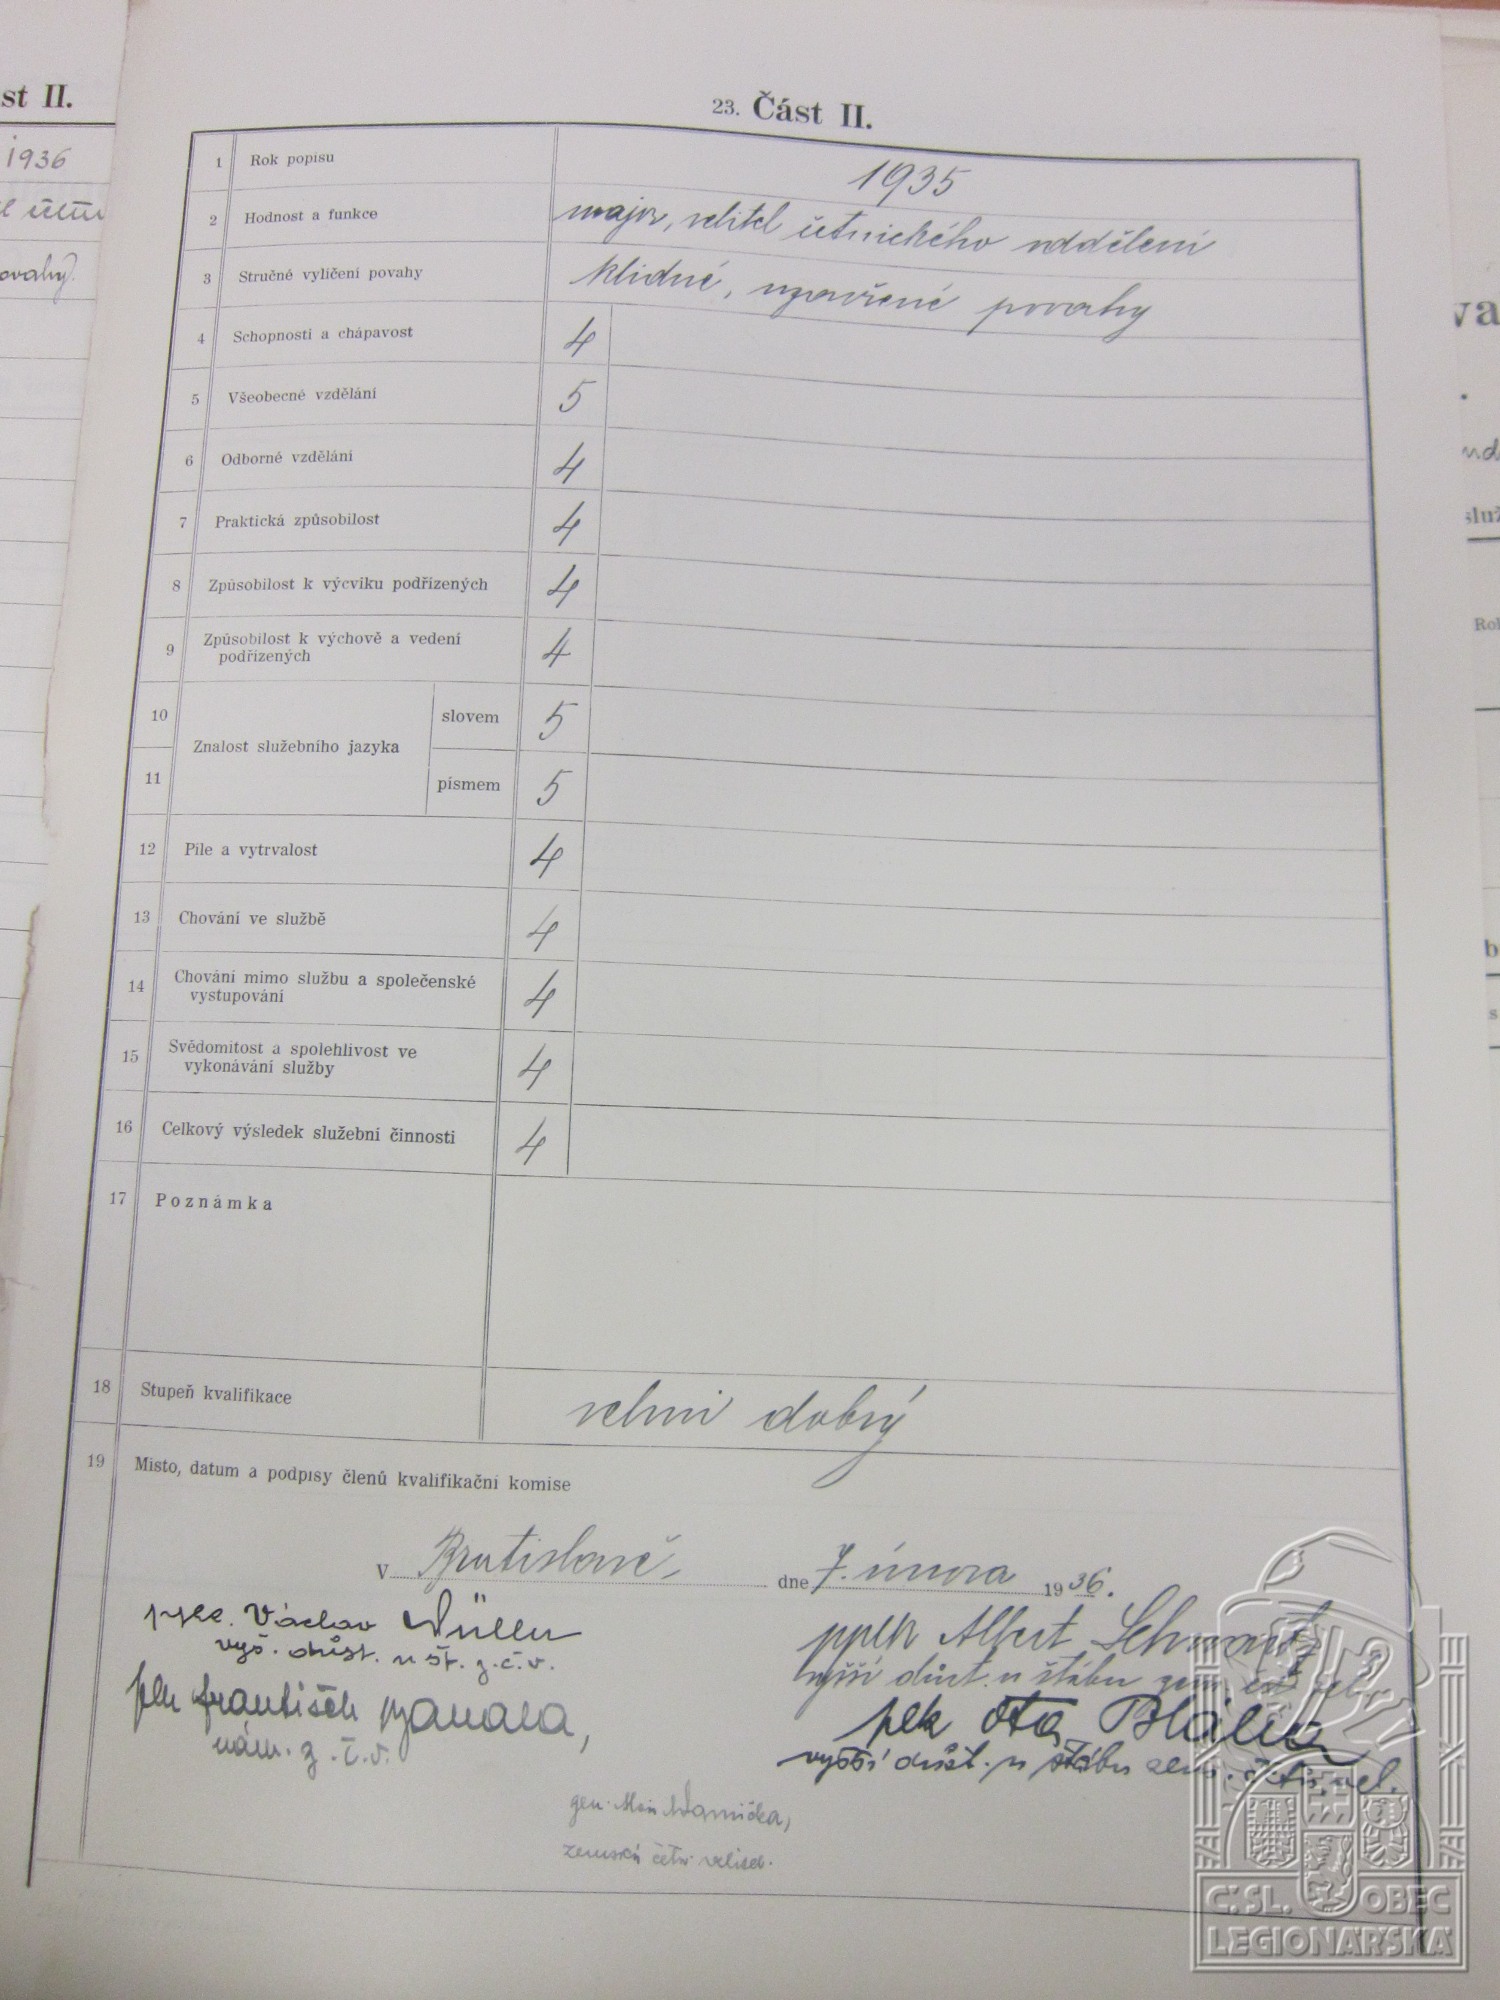 st II.
1936
ovahy.
23. Část II.
1 Rok popisu 1935
2 Hodnost a funkce major, velitel četnického oddělení
3 Stručné vylíčení povahy klidné, uzavřené povahy
4 Schopnosti a chápavost 4
5 Všeobecné vzdělání 5
6 Odborné vzdělání 4
7 Praktická způsobilost 4
8 Způsobilost k výcviku podřízených 4
9 Způsobilost k výchově a vedení
podřízených 4
10 slovem 5
Znalost služebního jazyka
11 písmem 5
12 Píle a vytrvalost 4
13 Chování ve službě 4
14 Chování mimo službu a společenské
vystupování 4
15 Svědomitost a spolehlivost ve
vykonávání služby 4
16 Celkový výsledek služební činnosti 4
17 Poznámka
18 Stupeň kvalifikace velmi dobrý
19 Místo, datum a podpisy členů kvalifikační komise
V Bratislavě, dne 7. února 1936.
Václav
vyš. důst. u št. z. č. v.
plk František
nám. z. č. v.
pplk Albert
vyšší důst. u štábu zem. čet. vel.
plk Ota Bláha
vyšší důst. u štábu zem. četn. vel.
gen.
zemský četn. velitel.
va
služ
Rok
Č.SL. OBEC
LEGIONÁŘSKÁ